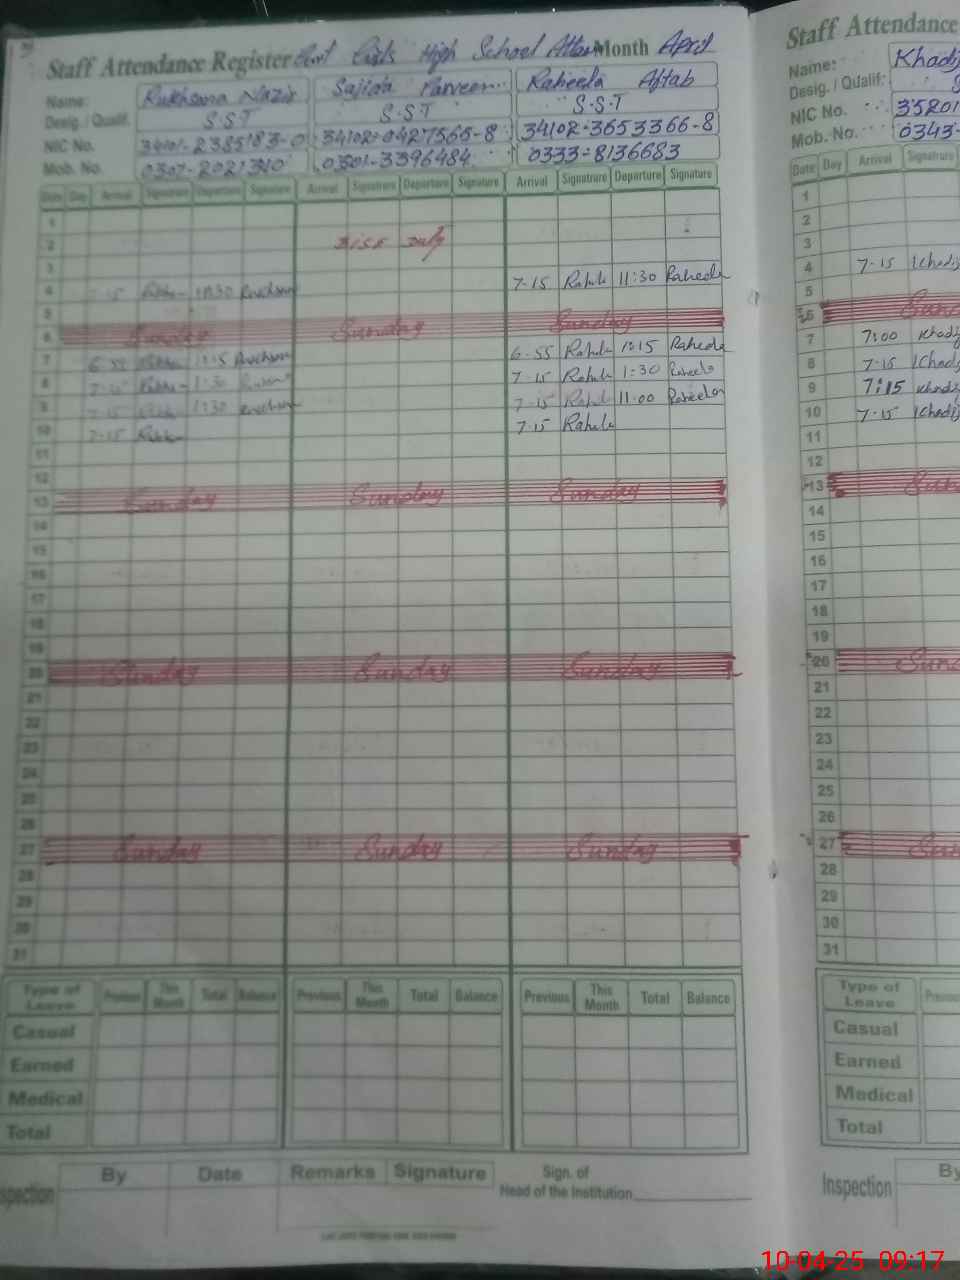 Staff Attendance Register Govt Girls High School Month April
Name: Rukhsana Nazir Sajida Parveen Raheela Aftab
Desig. / Qualif. S.S.T S.S.T S.S.T
NIC No. 34101-2385183-0 34102-0427566-8 34102-3653366-8
Mob. No. 0307-2021310 0301-3396484 0333-8136683
Date Day Arrival Signature Departure Signature Arrival Signature Departure Signature Arrival Signature Departure Signature
1
2 Duty
3
4 7-15 7-15 11:30 Raheela
5
6 Sunday Sunday Sunday
7 6-55 1:15 6-55 1:15 Raheela
8 7-15 1:30 7-15 1:30 Raheela
9 7-15 7-15 11:00 Raheela
10 7-15 7-15
11
12
13 Sunday Sunday Sunday
14
15
16
17
18
19
20 Sunday Sunday Sunday
21
22
23
24
25
26
27 Sunday Sunday Sunday
28
29
30
31
Type of Leave Previous This Month Total Balance Previous This Month Total Balance Previous This Month Total Balance
Casual
Earned
Medical
Total
By Date Remarks Signature
Sign. of
Head of the Institution
Staff Attendance
Name: Khadij
Desig. / Qualif: S
NIC No. 35201
Mob. No. 0343-
Date Day Arrival Signature
1
2
3
4 7-15 Khadij
5
6 Sun
7 7:00 Khadij
8 7-15 Khadij
9 7:15 Khadij
10 7-15 Khadij
11
12
13 Sun
14
15
16
17
18
19
20 Sun
21
22
23
24
25
26
27 Sun
28
29
30
31
Type of Leave
Casual
Earned
Medical
Total
Inspection By
10-04-25 09:17